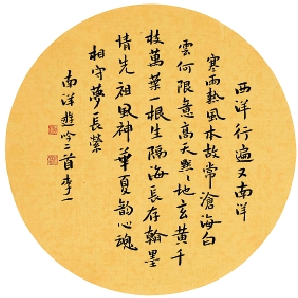 西洋行遍又南洋
寒雨熱風亦故常滄海白
雲何限意高天默々地玄黄千
枝萬葉一根生隔海長存翰墨
情先祖風神華夏韵心魂
相守夢長縈
南洋遊吟二首李一